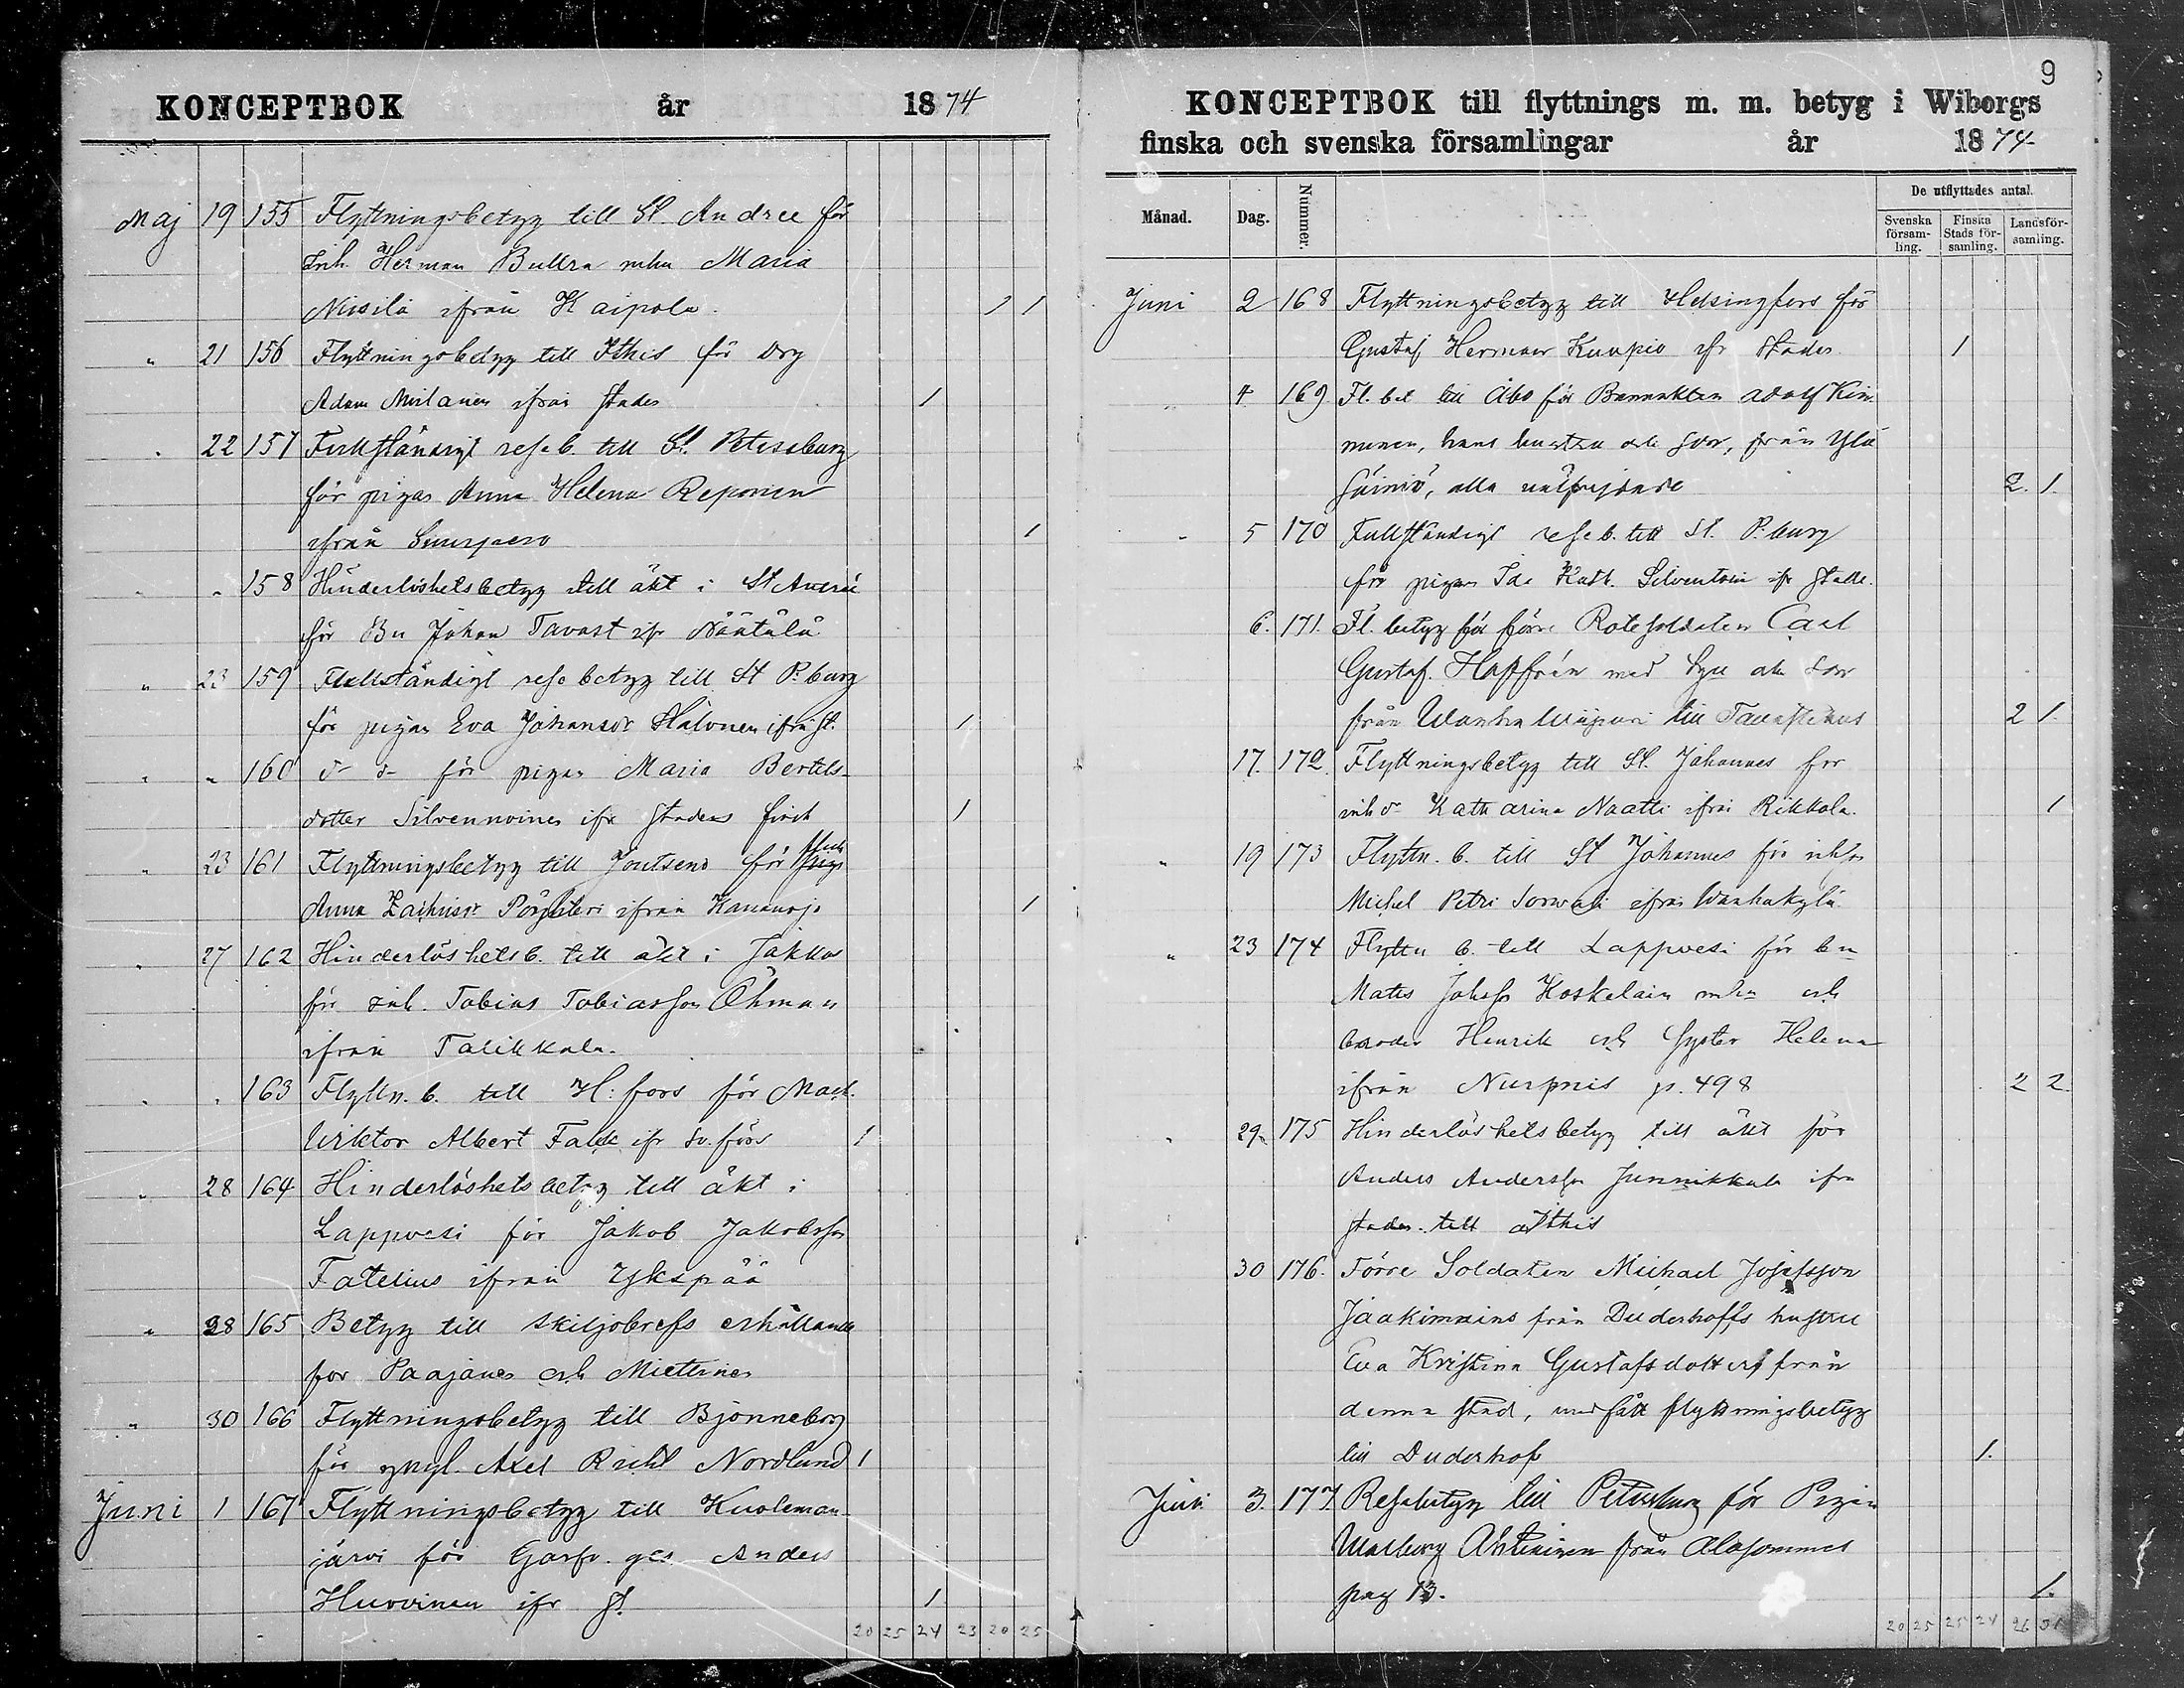 KONCEPTBOK år 1874
Maj 19 155 Flyttningsbetyg till St. Andree för
Inh. Herman Bullra mhu Maria
Nissilä ifrån Kaipola. 1 1
" 21 156 Flyttningsbetyg till Ithis för drg
Adam Mustanen ifrån staden 1
" 22 157 Fullständigt reseb. till St. Petersburg
för pigan Anna Helena Reponen
ifrån Suurpero 1
" " 158 Hinderlöshetsbetyg till äkt i St Andree
för Bn Johan Tavast ifr Näätälä
" 23 159 Fullständigt rese betyg till St P:burg
för pigan Eva Johansdr Halonen ifrå st. 1
" " 160 d- d- för pigan Maria Bertels-
dotter Silvennoinen ifr stadens finska 1
" 23 161 Flyttningsbetyg till Joutseno för piga
Anna Zachrisdr ifrån Kananoja 1
" 27 162 Hinderlöshetsb. till äkt i Jakkas
för inh. Tobias Tobiasson Öhman
ifrån Talikkala.
" " 163 Flyttn. b. till H:fors för Mask.
Wiktor Albert Falck ifr Sv. förs 1
" 28 164 Hinderlöshets betyg till äkt i
Lappvesi för Jakob Jakobsson
Fatelius ifrån Ykspää
" 28 165 Betyg till skiljobrefs erhållande
for Paajanen och Miettinen
" 30 166 Flyttningsbetyg till Björneborg
för yngl. Axel Nordlund 1
Juni 1 167 Flyttningsbetyg till Kuoleman-
järvi för Garfv. ges. Anders
Huovinen ifr st. 1
20 25 24 23 20 25
9
KONCEPTBOK till flyttnings m. m. betyg i Wiborgs
finska och svenska församlingar år 1874
Månad. Dag. Nummer. De utflyttades antal.
Svenska församling. Finska Stads församling. Landsförsamling.
Juni 2 168 Flyttningsbetyg till Helsingfors för
Gustaf Herman Kuopio ifr staden 1
" 4 169 Fl. bet till Åbo för Bannvakten Adolf Kin-
nunen, hans hustru och son, från Ylä
Säiniö, alla 2. 1.
" 5 170 Fullständigt reseb. till St. P:burg
för pigan Ida Kath. Silventoin ifr stade.
6. 171. Fl. betyg för förre Rotesoldaten Carl
Gustaf Haffrén med hustru och son
från Wanha Wiipuri till Tavastehus 2 1.
17. 172. Flyttningsbetyg till St. Johannes for
inh d- Katharina Naatti ifrån Rikkola. 1
" 19 173 Flyttn. b. till St Johannes för inhsn
Michel Petri Sorwali ifrån Wanhakylä
" 23 174 Flyttn b. till Lappvesi för bn
Mats Johsson Koskelain mhu och
broder Henrik och Syster Helena
ifrån Nurpnis p. 498 2 2
" 29. 175 Hinderlöshetsbetyg till äkt för
Anders Andersson Junnikkala ifrn
staden till Ithis
30 176. Förre Soldaten Michael Josefsson
Jaakimains från Duderhoffs hustru
Eva Kristina Gustafsdotter från
denna stad, flyttningsbetyg
till Duderhof 1.
Juli 3. 177. Resebetyg till Petersburg för Pigan
Walborg Ahtiainen från Alasommee
pag 13. 1.
20 25 25 24 26 31